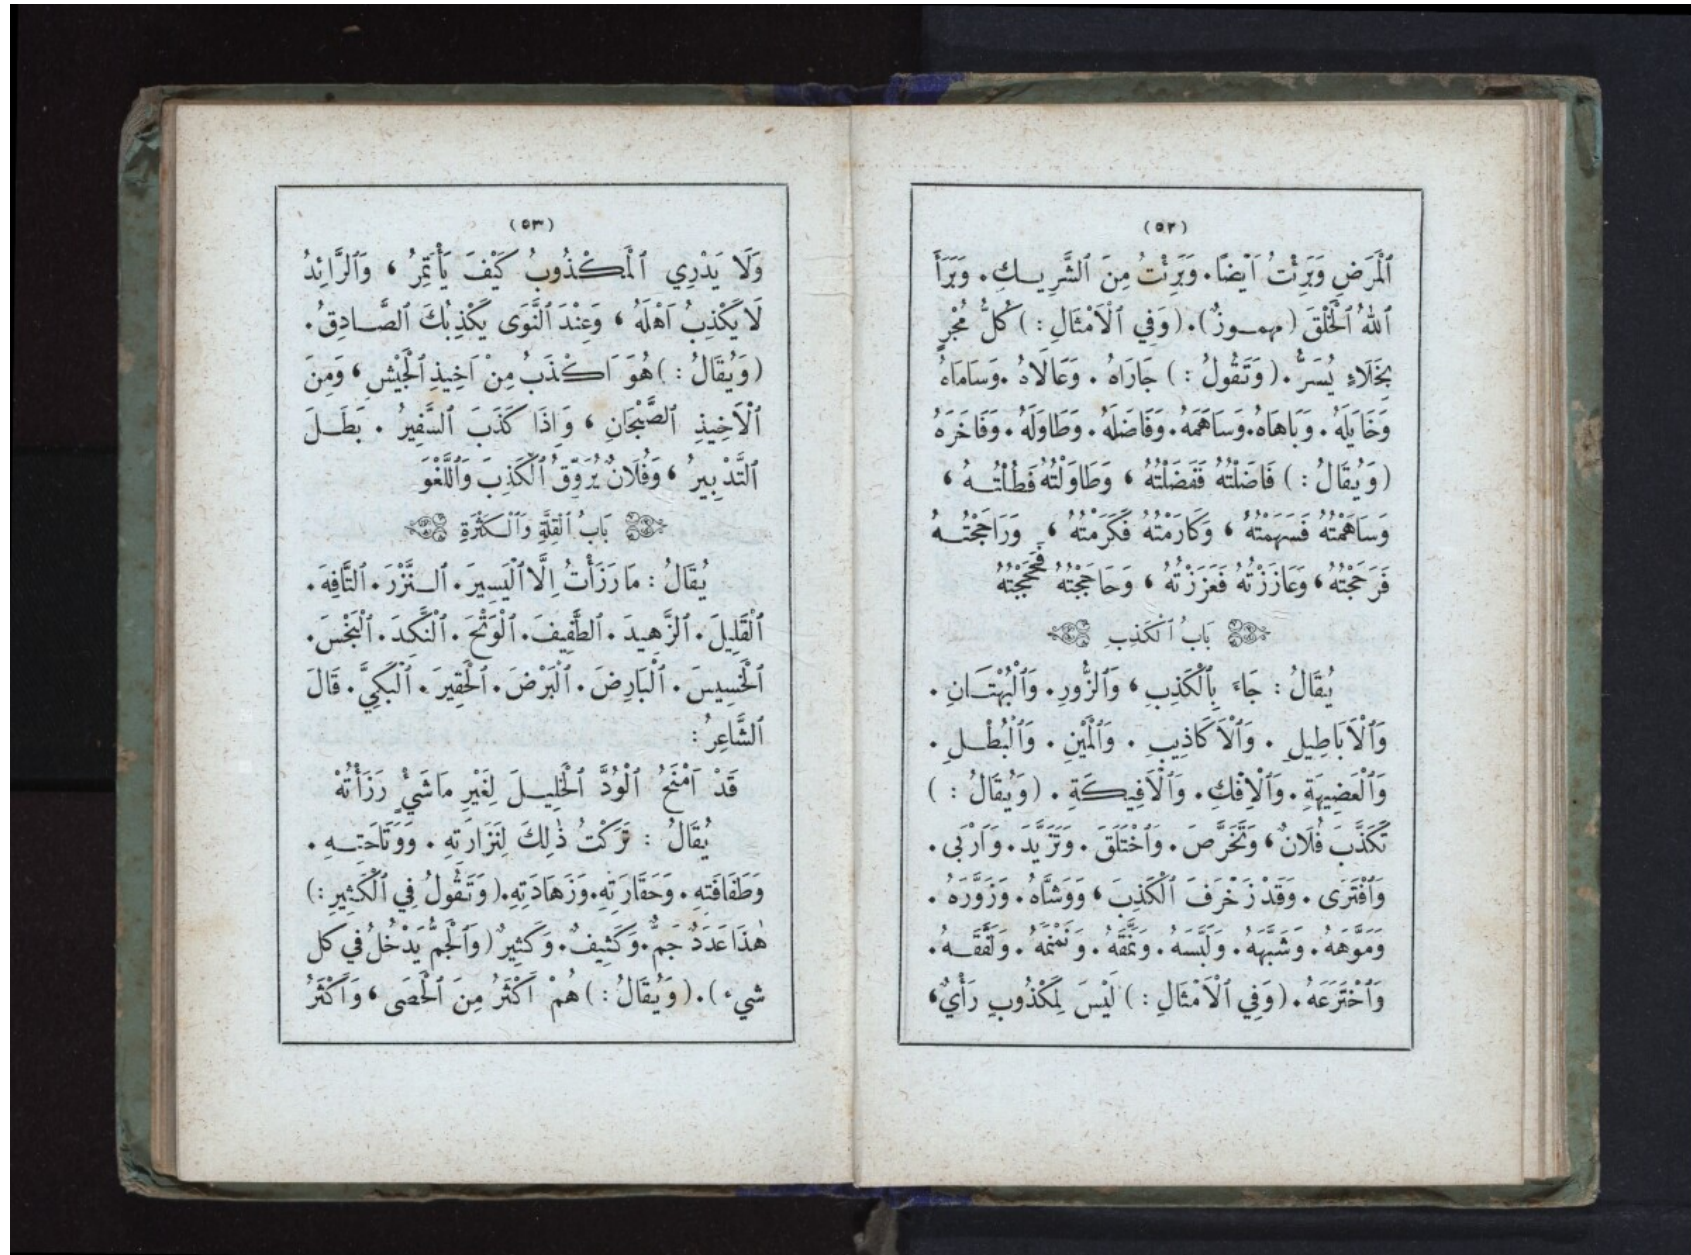 (٥٢)
ٱلْمَرَضِ وَبَرِئْتُ اَيْضًا. وَبَرِئْتُ مِنَ ٱلشَّرِيكِ. وَبَرَأَ
ٱللهُ ٱلْخَلْقَ (مهموزٌ). (وَفِي ٱلْأَمْثَالِ :) كُلُّ مُجْرٍ
بِخَلَاءٍ يُسَرُّ. (وَتَقُولُ :) جَارَاهُ. وَعَالَاهُ. وَسَامَاهُ
وَخَايَلَهُ. وَبَاهَاهُ. وَسَاهَمَهُ. وَفَاضَلَهُ. وَطَاوَلَهُ. وَفَاخَرَهُ
(وَيُقَالُ :) فَاضَلْتُهُ فَفَضَلْتُهُ، وَطَاوَلْتُهُ فَطُلْتُهُ،
وَسَاهَمْتُهُ فَسَهَمْتُهُ، وَكَارَمْتُهُ فَكَرَمْتُهُ، وَرَاجَحْتُهُ
فَرَجَحْتُهُ، وَعَازَزْتُهُ فَعَزَزْتُهُ، وَحَاجَجْتُهُ فَحَجَجْتُهُ
بَابُ ٱلْكَذِبِ
يُقَالُ : جَاءَ بِٱلْكَذِبِ، وَٱلزُّورِ. وَٱلْبُهْتَانِ.
وَٱلْأَبَاطِيلِ. وَٱلْأَكَاذِيبِ. وَٱلْمَيْنِ. وَٱلْبُطْلِ.
وَٱلْعَضِيهَةِ. وَٱلْاِفْكِ. وَٱلْأَفِيكَةِ. (وَيُقَالُ :)
تَكَذَّبَ فُلَانٌ، وَتَخَرَّصَ. وَٱخْتَلَقَ. وَتَزَيَّدَ. وَاَرْبَى.
وَٱفْتَرَى. وَقَدْ زَخْرَفَ ٱلْكَذِبَ، وَوَشَّاهُ. وَزَوَّرَهُ.
وَمَوَّهَهُ. وَشَبَّهَهُ. وَلَبَّسَهُ. وَنَمَّقَهُ. وَنَمْنَمَهُ. وَلَفَّقَهُ.
وَٱخْتَرَعَهُ. (وَفِي ٱلْأَمْثَالِ :) لَيْسَ لِمَكْذُوبٍ رَأْيٌ،
(٥٣)
وَلَا يَدْرِي ٱلْمَكْذُوبُ كَيْفَ يَأْتَمِرُ، وَٱلرَّائِدُ
لَا يَكْذِبُ اَهْلَهُ، وَعِنْدَ ٱلنَّوَى يَكْذِبُكَ ٱلصَّادِقُ.
(وَيُقَالُ :) هُوَ اَكْذَبُ مِنْ اَخِيذِ ٱلْجَيْشِ، وَمِنَ
ٱلْأَخِيذِ ٱلصَّبْحَانِ، وَاِذَا كَذَبَ ٱلسَّفِيرُ. بَطَلَ
ٱلتَّدْبِيرُ، وَفُلَانٌ يُرَوِّقُ ٱلْكَذِبَ وَٱللَّغْوَ
بَابُ ٱلْقِلَّةِ وَٱلْكَثْرَةِ
يُقَالُ : مَا رَزَأْتُ اِلَّا ٱلْيَسِيرَ. ٱلنَّزْرَ. ٱلتَّافِهَ.
ٱلْقَلِيلَ. ٱلزَّهِيدَ. ٱلطَّفِيفَ. ٱلْوَتْحَ. ٱلنَّكِدَ. ٱلْبَخْسَ.
ٱلْخَسِيسَ. ٱلْبَارِضَ. ٱلْبَرْضَ. ٱلْحَقِيرَ. ٱلْبَكِيَّ. قَالَ
ٱلشَّاعِرُ :
قَدْ اَمْنَحُ ٱلْوُدَّ ٱلْخَلِيلَ لِغَيْرِ مَا شَيْءٍ رَزَأْتُهْ
يُقَالُ : تَرَكْتُ ذٰلِكَ لِنَزَارَتِهِ. وَوَتَاحَتِهِ.
وَطَفَافَتِهِ. وَحَقَارَتِهِ. وَزَهَادَتِهِ. (وَتَقُولُ فِي ٱلْكَثِيرِ :)
هٰذَا عَدَدٌ جَمٌّ. وَكَثِيفٌ. وَكَثِيرٌ (وَٱلْجَمُّ يَدْخُلُ فِي كل
شيء). (وَيُقَالُ :) هُمْ اَكْثَرُ مِنَ ٱلْحَصَى، وَاَكْثَرُ